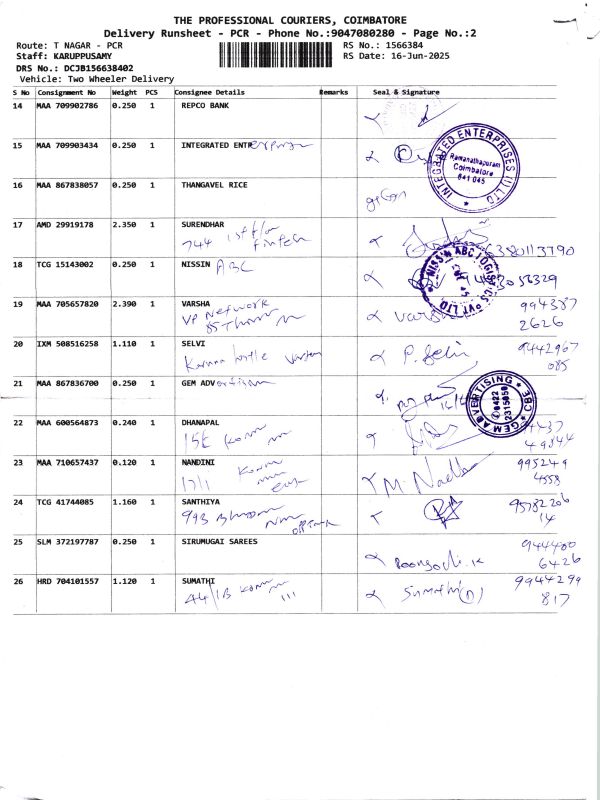 THE PROFESSIONAL COURIERS, COIMBATORE
Delivery Runsheet - PCR - Phone No.:9047080280 - Page No.:2
Route: T NAGAR - PCR
RS No.: 1566384
Staff: KARUPPUSAMY
RS Date: 16-Jun-2025
DRS No.: DCJB156638402
Vehicle: Two Wheeler Delivery
S No Consignment No Weight PCS Consignee Details Remarks Seal & Signature
14 MAA 709902786 0.250 1 REPCO BANK
15 MAA 709903434 0.250 1 INTEGRATED
INTEGRATED ENTERPRISES (I) LTD
Ramanathapuram
Coimbatore
641 045
16 MAA 867838057 0.250 1 THANGAVEL RICE
17 AMD 29919178 2.350 1 SURENDHAR
744 1st floor
fintech
6380113790
18 TCG 15143002 0.250 1 NISSIN ABC
NISSIN ABC LOGISTICS PVT LTD
19 MAA 705657820 2.390 1 VARSHA
VP Network
994387
2626
20 IXM 508516258 1.110 1 SELVI
P. Selvi
9442967
085
21 MAA 867836700 0.250 1 GEM ADVertising
GEM ADVERTISING
0422
2315050
22 MAA 600564873 0.240 1 DHANAPAL
15E
23 MAA 710657437 0.120 1 NANDINI
995249
4558
24 TCG 41744085 1.160 1 SANTHIYA
99B
95782206
14
25 SLM 372197787 0.250 1 SIRUMUGAI SAREES
944480
6426
26 HRD 704101557 1.120 1 SUMATHI
44/1B
Sumathi
9944299
817